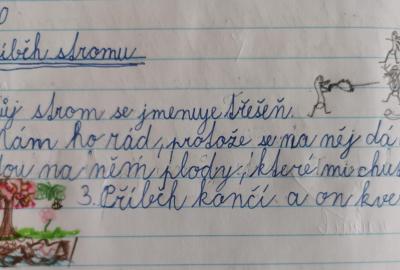 0
íběh stromu
ůj strom se jmenuje třešeň.
Mám ho rád, protože se na něj dá
ou na něm plody, které mi chut
3. Příběh končí a on kve